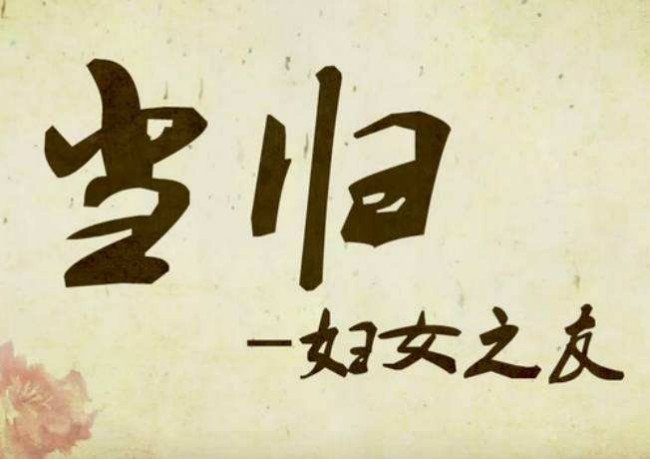 当归
—妇女之友